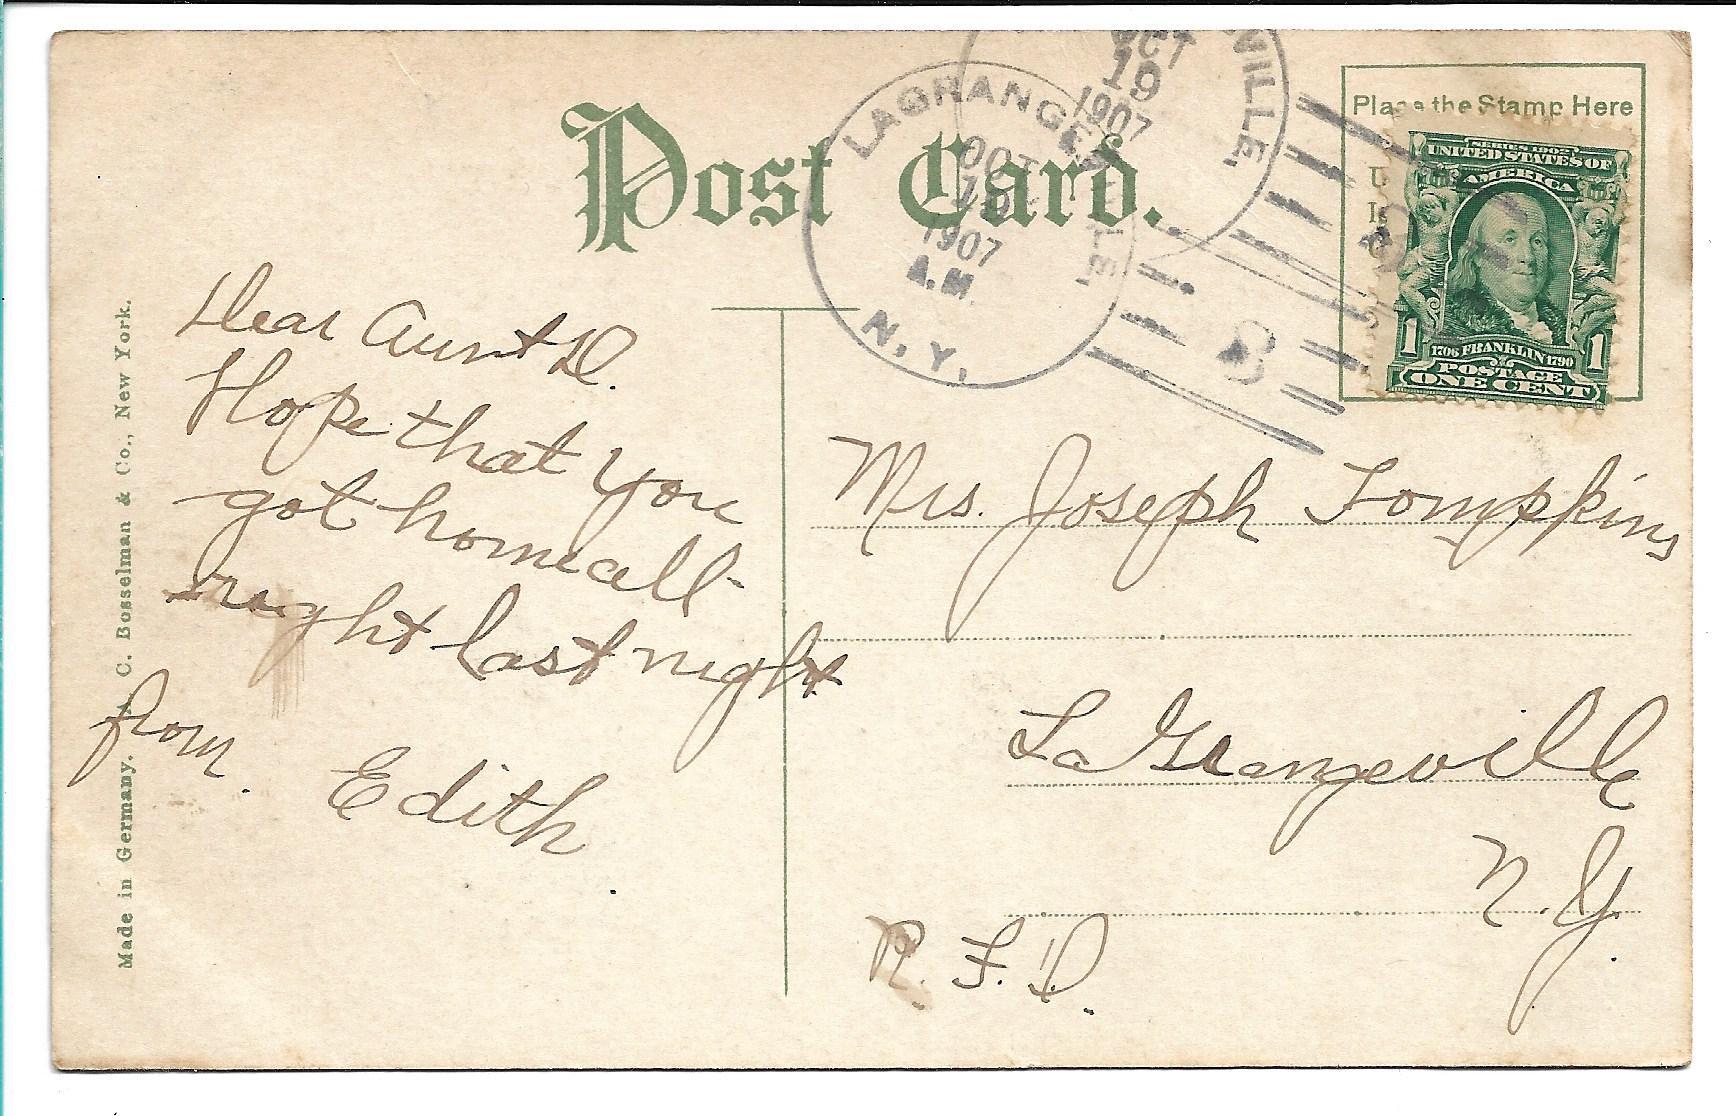 Post Card.
LAGRANGEVILLE,
OCT
19
1907
A.M.
N.Y.
OCT
19
1907
VILLE,
3
Place the Stamp Here
SERIES 1902
UNITED STATES OF
AMERICA
1 1706 FRANKLIN 1790 1
POSTAGE
ONE CENT
Dear Aunt D.
Hope that you
got home all
right last night
from
Edith
Mrs. Joseph Tompkins
La Grangeville
N.Y.
R.F.D.
Made in Germany. A. C. Bosselman & Co., New York.